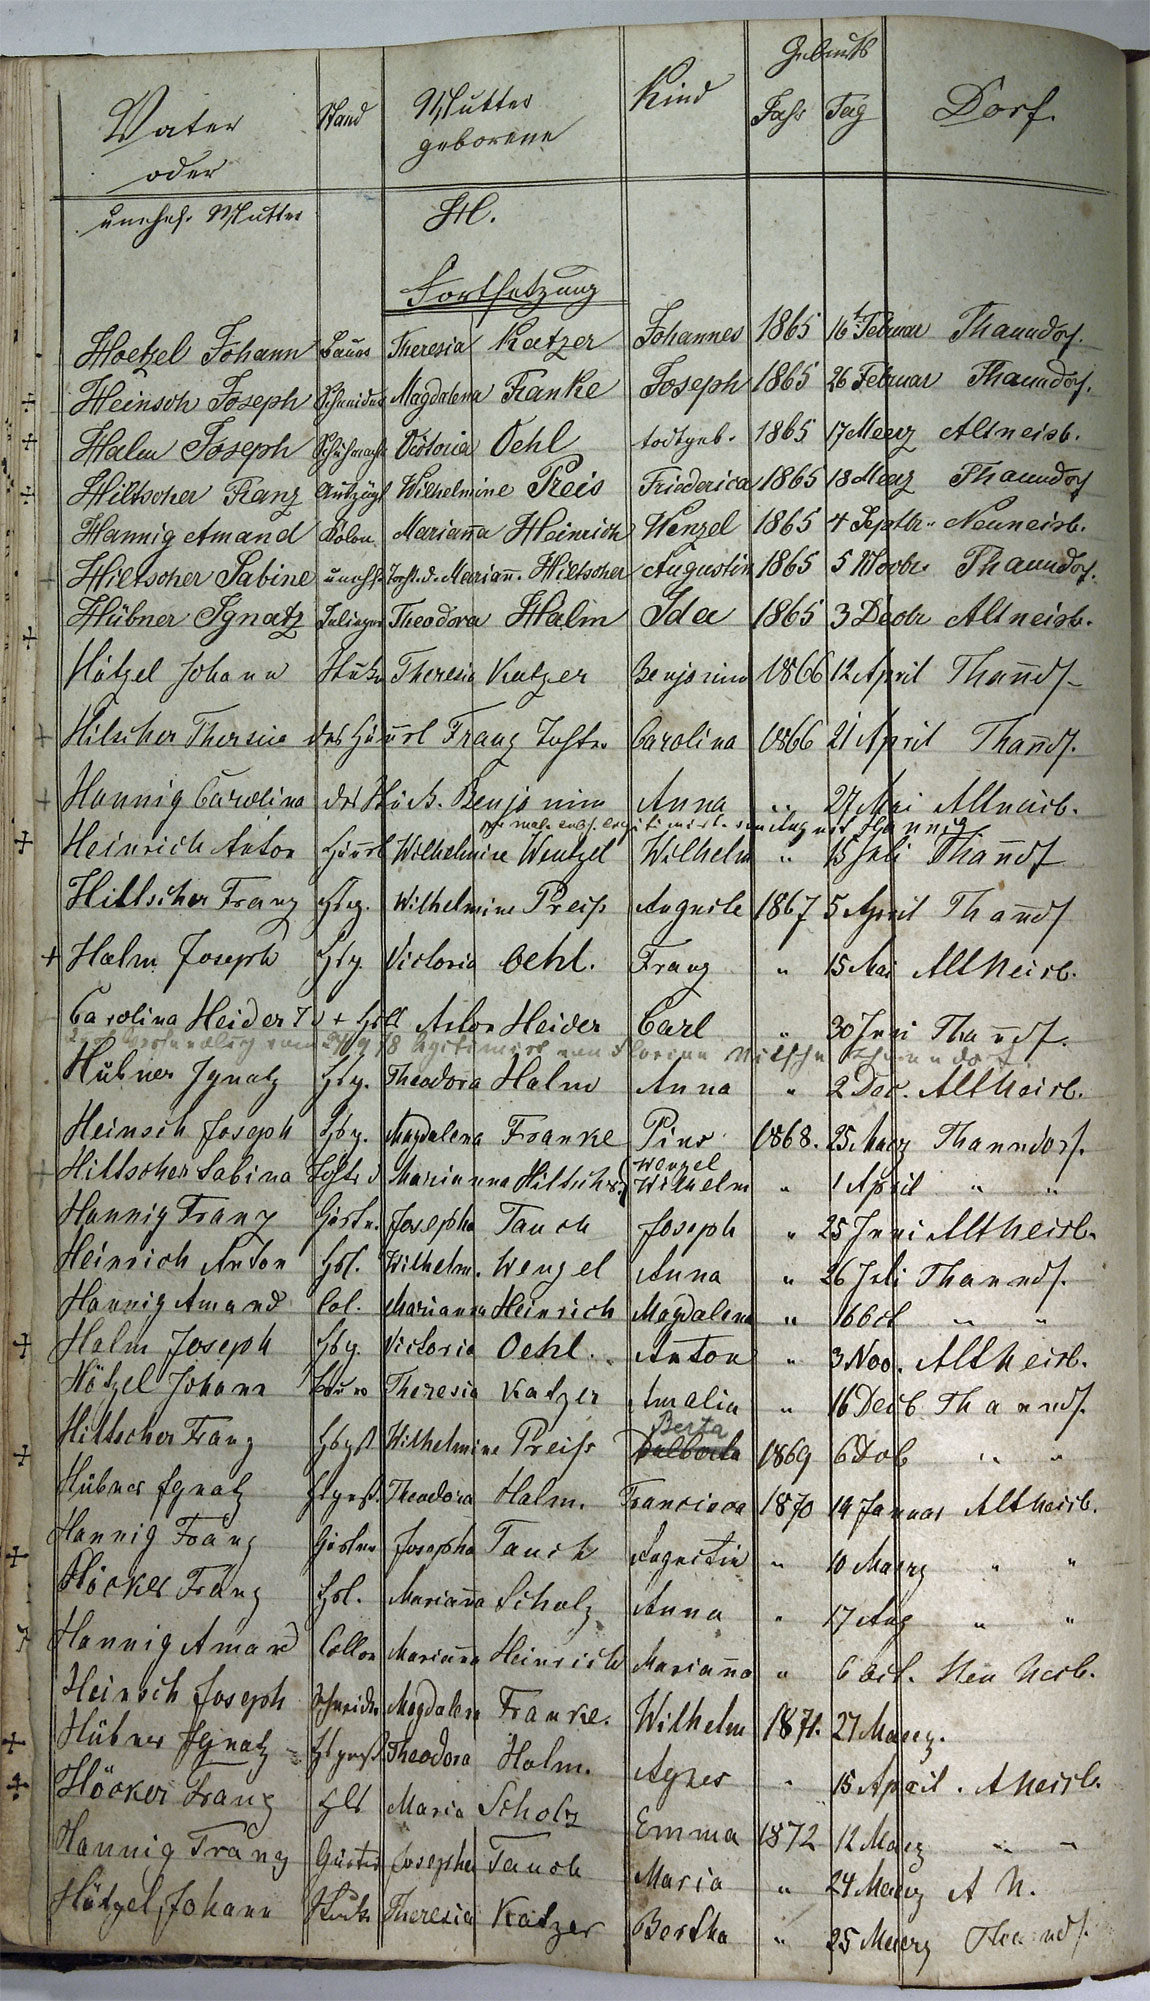 Geburts
Vater Stand Mutter Kind Jahr Tag Dorf.
oder geborene
unehel. Mutter H.
Fortsetzung
Hoetzel Johann Bauer Theresia Katzer Johannes 1865 16t Februar Thanndorf.
Heinsch Joseph Schneider Magdalena Franke Joseph 1865 26 Februar Thanndorf.
Halm Joseph Schuhmach Victoria Oehl todtgeb. 1865 17 Maerz Altneisb.
Hiltscher Franz Auszügl Wilhelmine Preis Friederica 1865 18 Maerz Thanndorf
Hannig Amand Colon Marianna Heinrich Wenzel 1865 4 Septbr. Neuneisb.
Hiltscher Sabine unehel Tocht. d. Mariann. Hiltscher Augustin 1865 5 Novbr. Thanndorf.
Hübner Ignatz Inlieger Theodora Halm Ida 1865 3 Decbr Altneisb.
Hötzel Johann Theresia Katzer Benjamin 1866 12 April Thanndf.
Hilscher Theresia des Häusl Franz Tochter Carolina 1866 21 April Thanndf.
Hannig Carolina des Benjamin Anna " 27 Mai Altneisb.
legitimirt von August Hannig
Heinrich Anton Häusl Wilhelmine Wentzel Wilhelm " 15 Juli Thanndf
Hiltscher Franz Htg. Wilhelmine Preiss Auguste 1867 5 April Thanndf
+ Halm Joseph Htg. Victoria Oehl. Franz " 15 Mai Altneisb.
Carolina Heider T d + Hsl Anton Heider Carl " 30 Juni Thanndf.
legitimirt von Florian Nitsche Thanndorf
Hübner Ignatz Htg. Theodora Halm Anna " 2 Dec. Altneisb.
Heinsch Joseph Hbg. Magdalena Franke Pius 1868. 25 Maerz Thanndorf.
Wenzel
Hiltscher Sabina Tocht d Marianna Hiltscher Wilhelm " 1 April " "
Hannig Franz Gärtn. Josepha Tauch Joseph " 25 Juni Altneisb.
Heinrich Anton Hsl. Wilhelm. Wenzel Anna " 26 Juli Thanndf.
Hannig Amand Col. Marianna Heinrich Magdalena " 16 Oct " "
Halm Joseph Hbg. Victoria Oehl. Anton " 3 Nov. Altneisb.
Hötzel Johann Bauer Theresia Katzer Amalia " 16 Decb Thanndf.
Berta
Hiltscher Franz Hbgst Wilhelmine Preiss 1869 6 " "
Hübner Ignatz Theodora Halm. Francisca 1870 14 Januar Altneisb.
Hannig Franz Gärtner Josepha Tauch Augustin " 10 Maerz " "
Höcker Franz Hsl. Marianna Scholz Anna " 17 Aug " "
Hannig Amand Collon Marianna Heinrich Marianna " 6 Oct. Neu Neisb.
Heinsch Joseph Schneider Magdalena Franke. Wilhelm 1871. 27 Maerz.
Hübner Ignatz Theodora Halm. Agnes " 15 April. A Neisb.
Höcker Franz Hsl Maria Scholz Emma 1872 12 Maerz " "
Hannig Franz Gärtner Josepha Tauch Maria " 24 Maerz A N.
Hötzel Johann Theresia Katzer Bertha " 25 Maerz Thanndf.